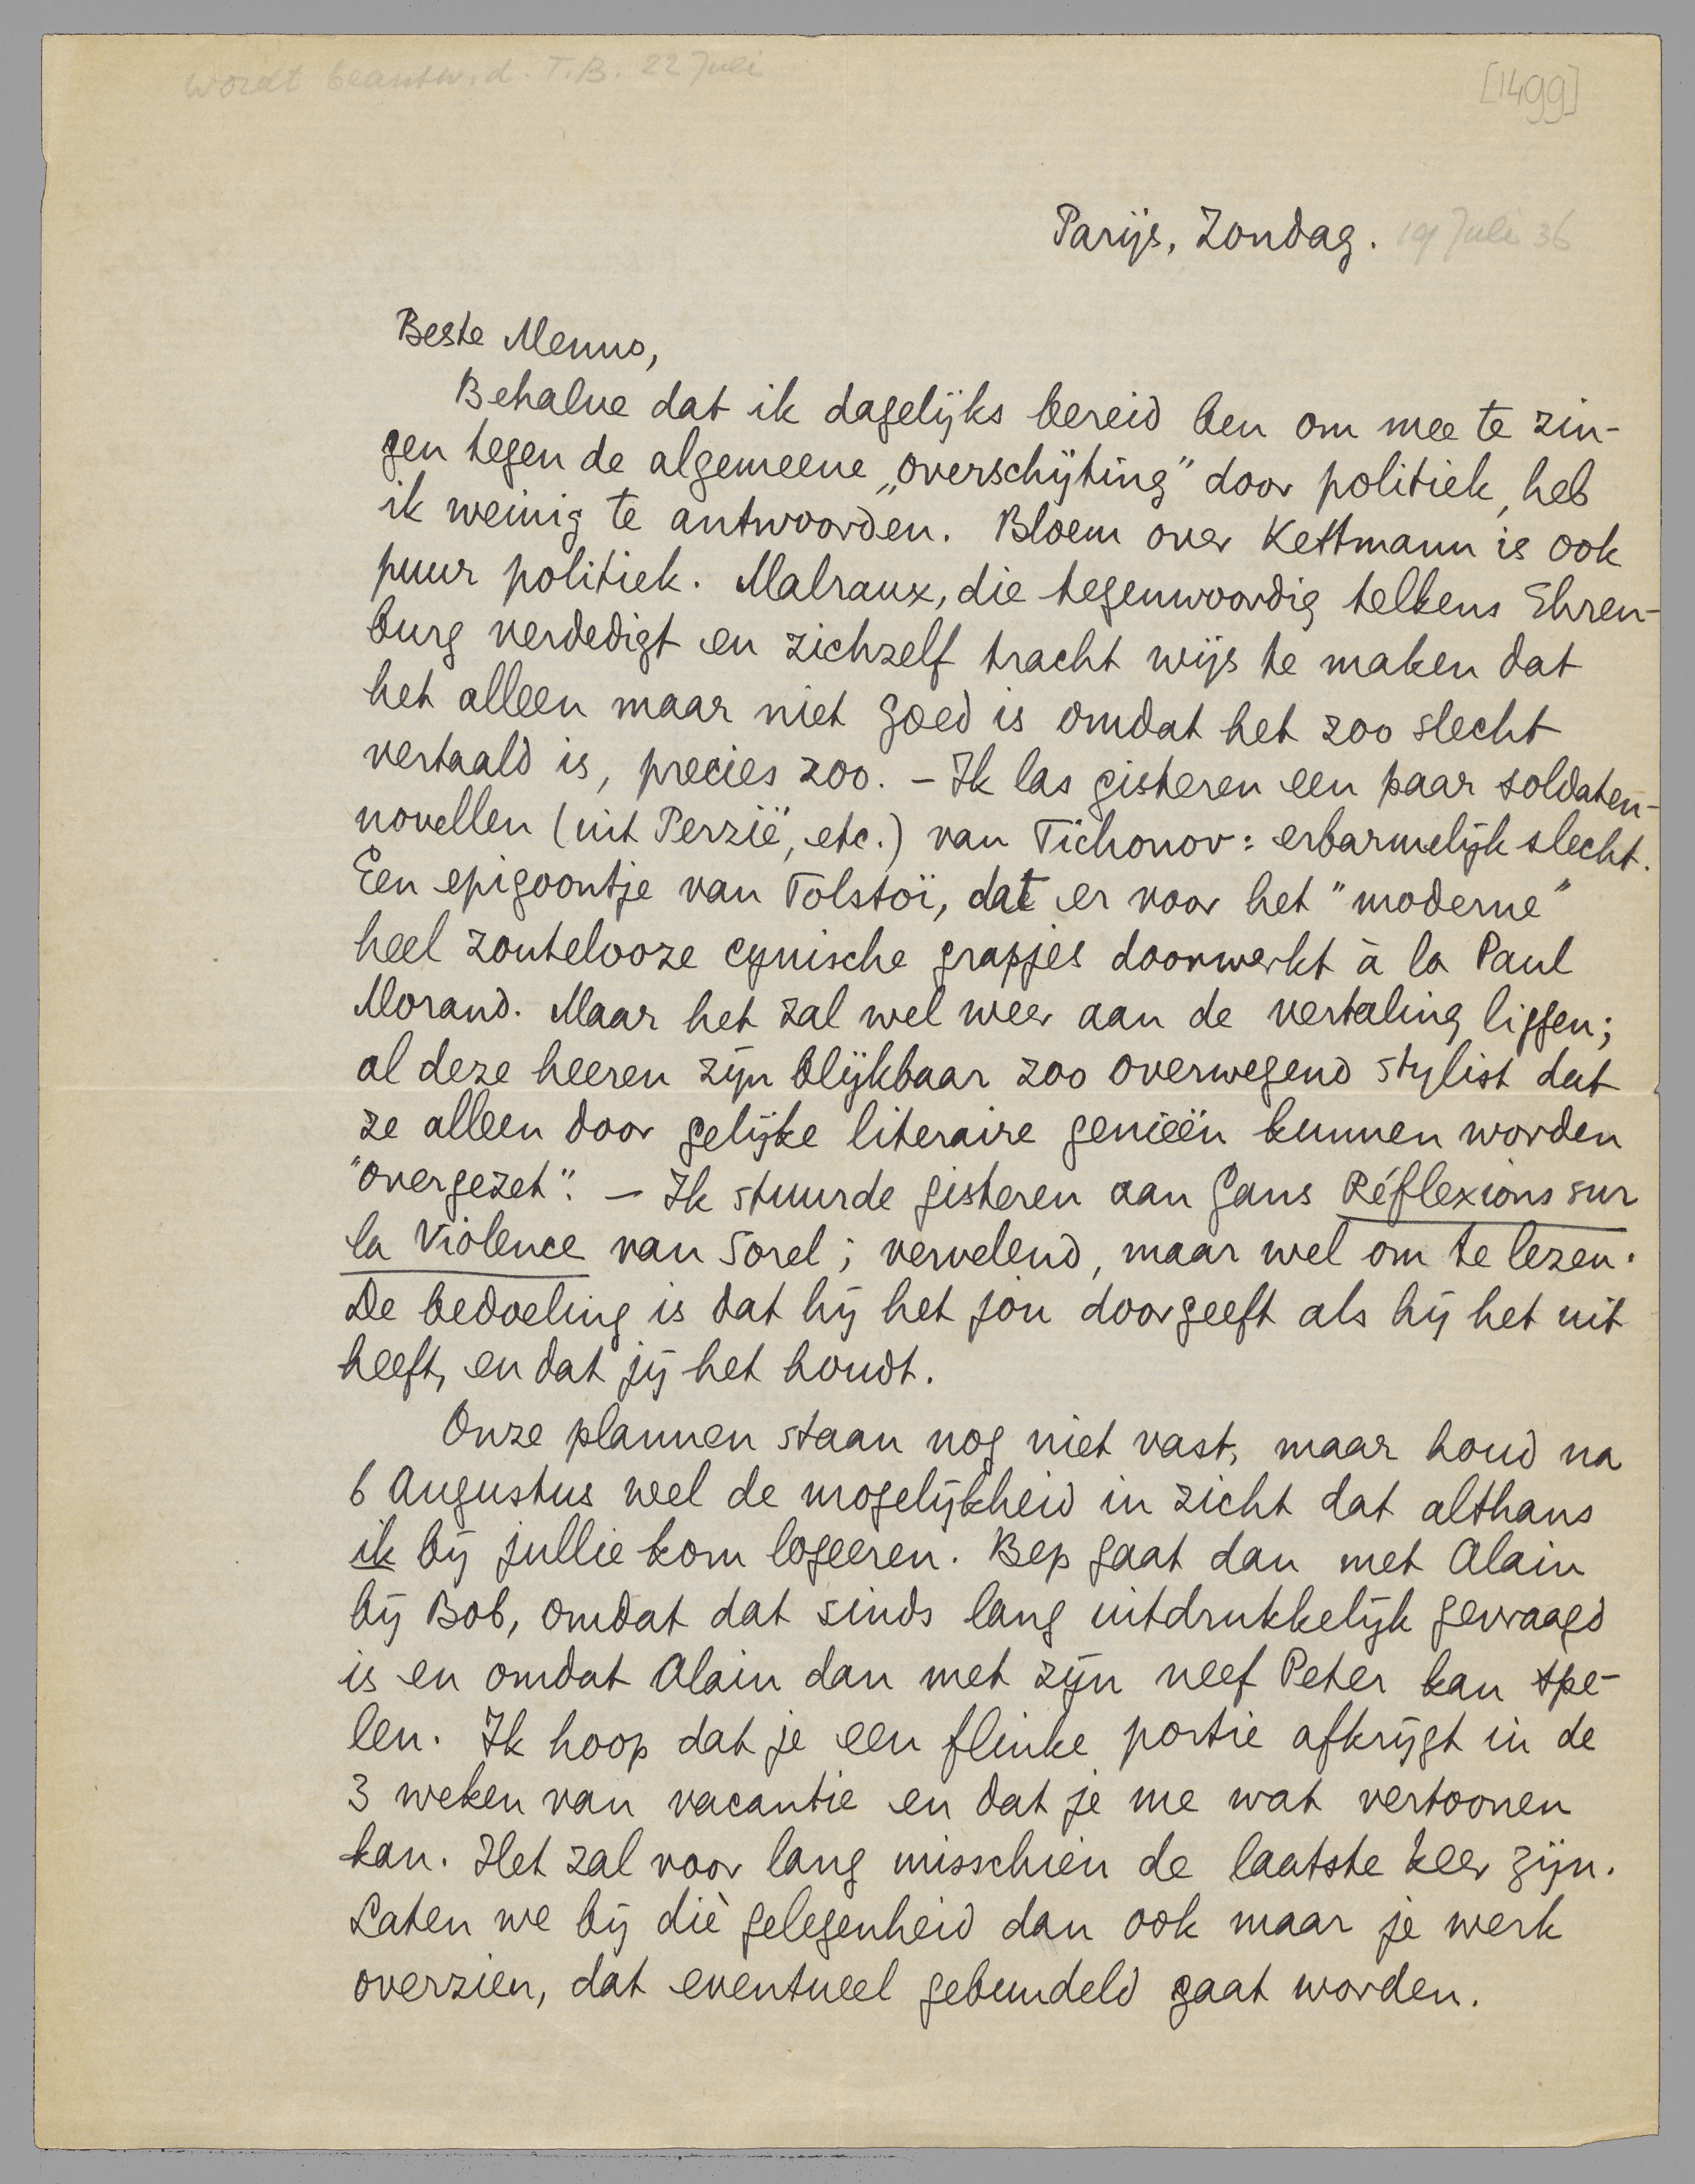 wordt beantw. d. T.B. 22 Juli
[1499]
Parijs, Zondag. 19 Juli 36
Beste Menno,
Behalve dat ik dagelijks bereid ben om mee te zin-
gen tegen de algemeene „overschijting" door politiek, heb
ik weinig te antwoorden. Bloem over Kettmann is ook
puur politiek. Malraux, die tegenwoordig telkens Ehren-
burg verdedigt en zichzelf tracht wijs te maken dat
het alleen maar niet goed is omdat het zoo slecht
vertaald is, precies zoo. – Ik las gisteren een paar soldaten-
novellen (uit Perzië, etc.) van Tichonov: erbarmelijk slecht.
Een epigoontje van Tolstoï, dat er voor het "moderne"
heel zoutelooze cynische grapjes doorwerkt à la Paul
Morand. Maar het zal wel weer aan de vertaling liggen;
al deze heeren zijn blijkbaar zoo overwegend stylist dat
ze alleen door gelijke literaire genieën kunnen worden
"overgezet". – Ik stuurde gisteren aan Gans Réflexions sur
la Violence van Sorel; vervelend, maar wel om te lezen.
De bedoeling is dat hij het jou doorgeeft als hij het uit
heeft, en dat jij het houdt.
Onze plannen staan nog niet vast, maar houd na
6 Augustus wel de mogelijkheid in zicht dat althans
ik bij jullie kom logeeren. Bep gaat dan met Alain
bij Bob, omdat dat sinds lang uitdrukkelijk gevraagd
is en omdat Alain dan met zijn neef Peter kan spe-
len. Ik hoop dat je een flinke portie afkrijgt in de
3 weken van vacantie en dat je me wat vertoonen
kan. Het zal voor lang misschien de laatste keer zijn.
Laten we bij dìe gelegenheid dan ook maar je werk
overzien, dat eventueel gebundeld gaat worden.